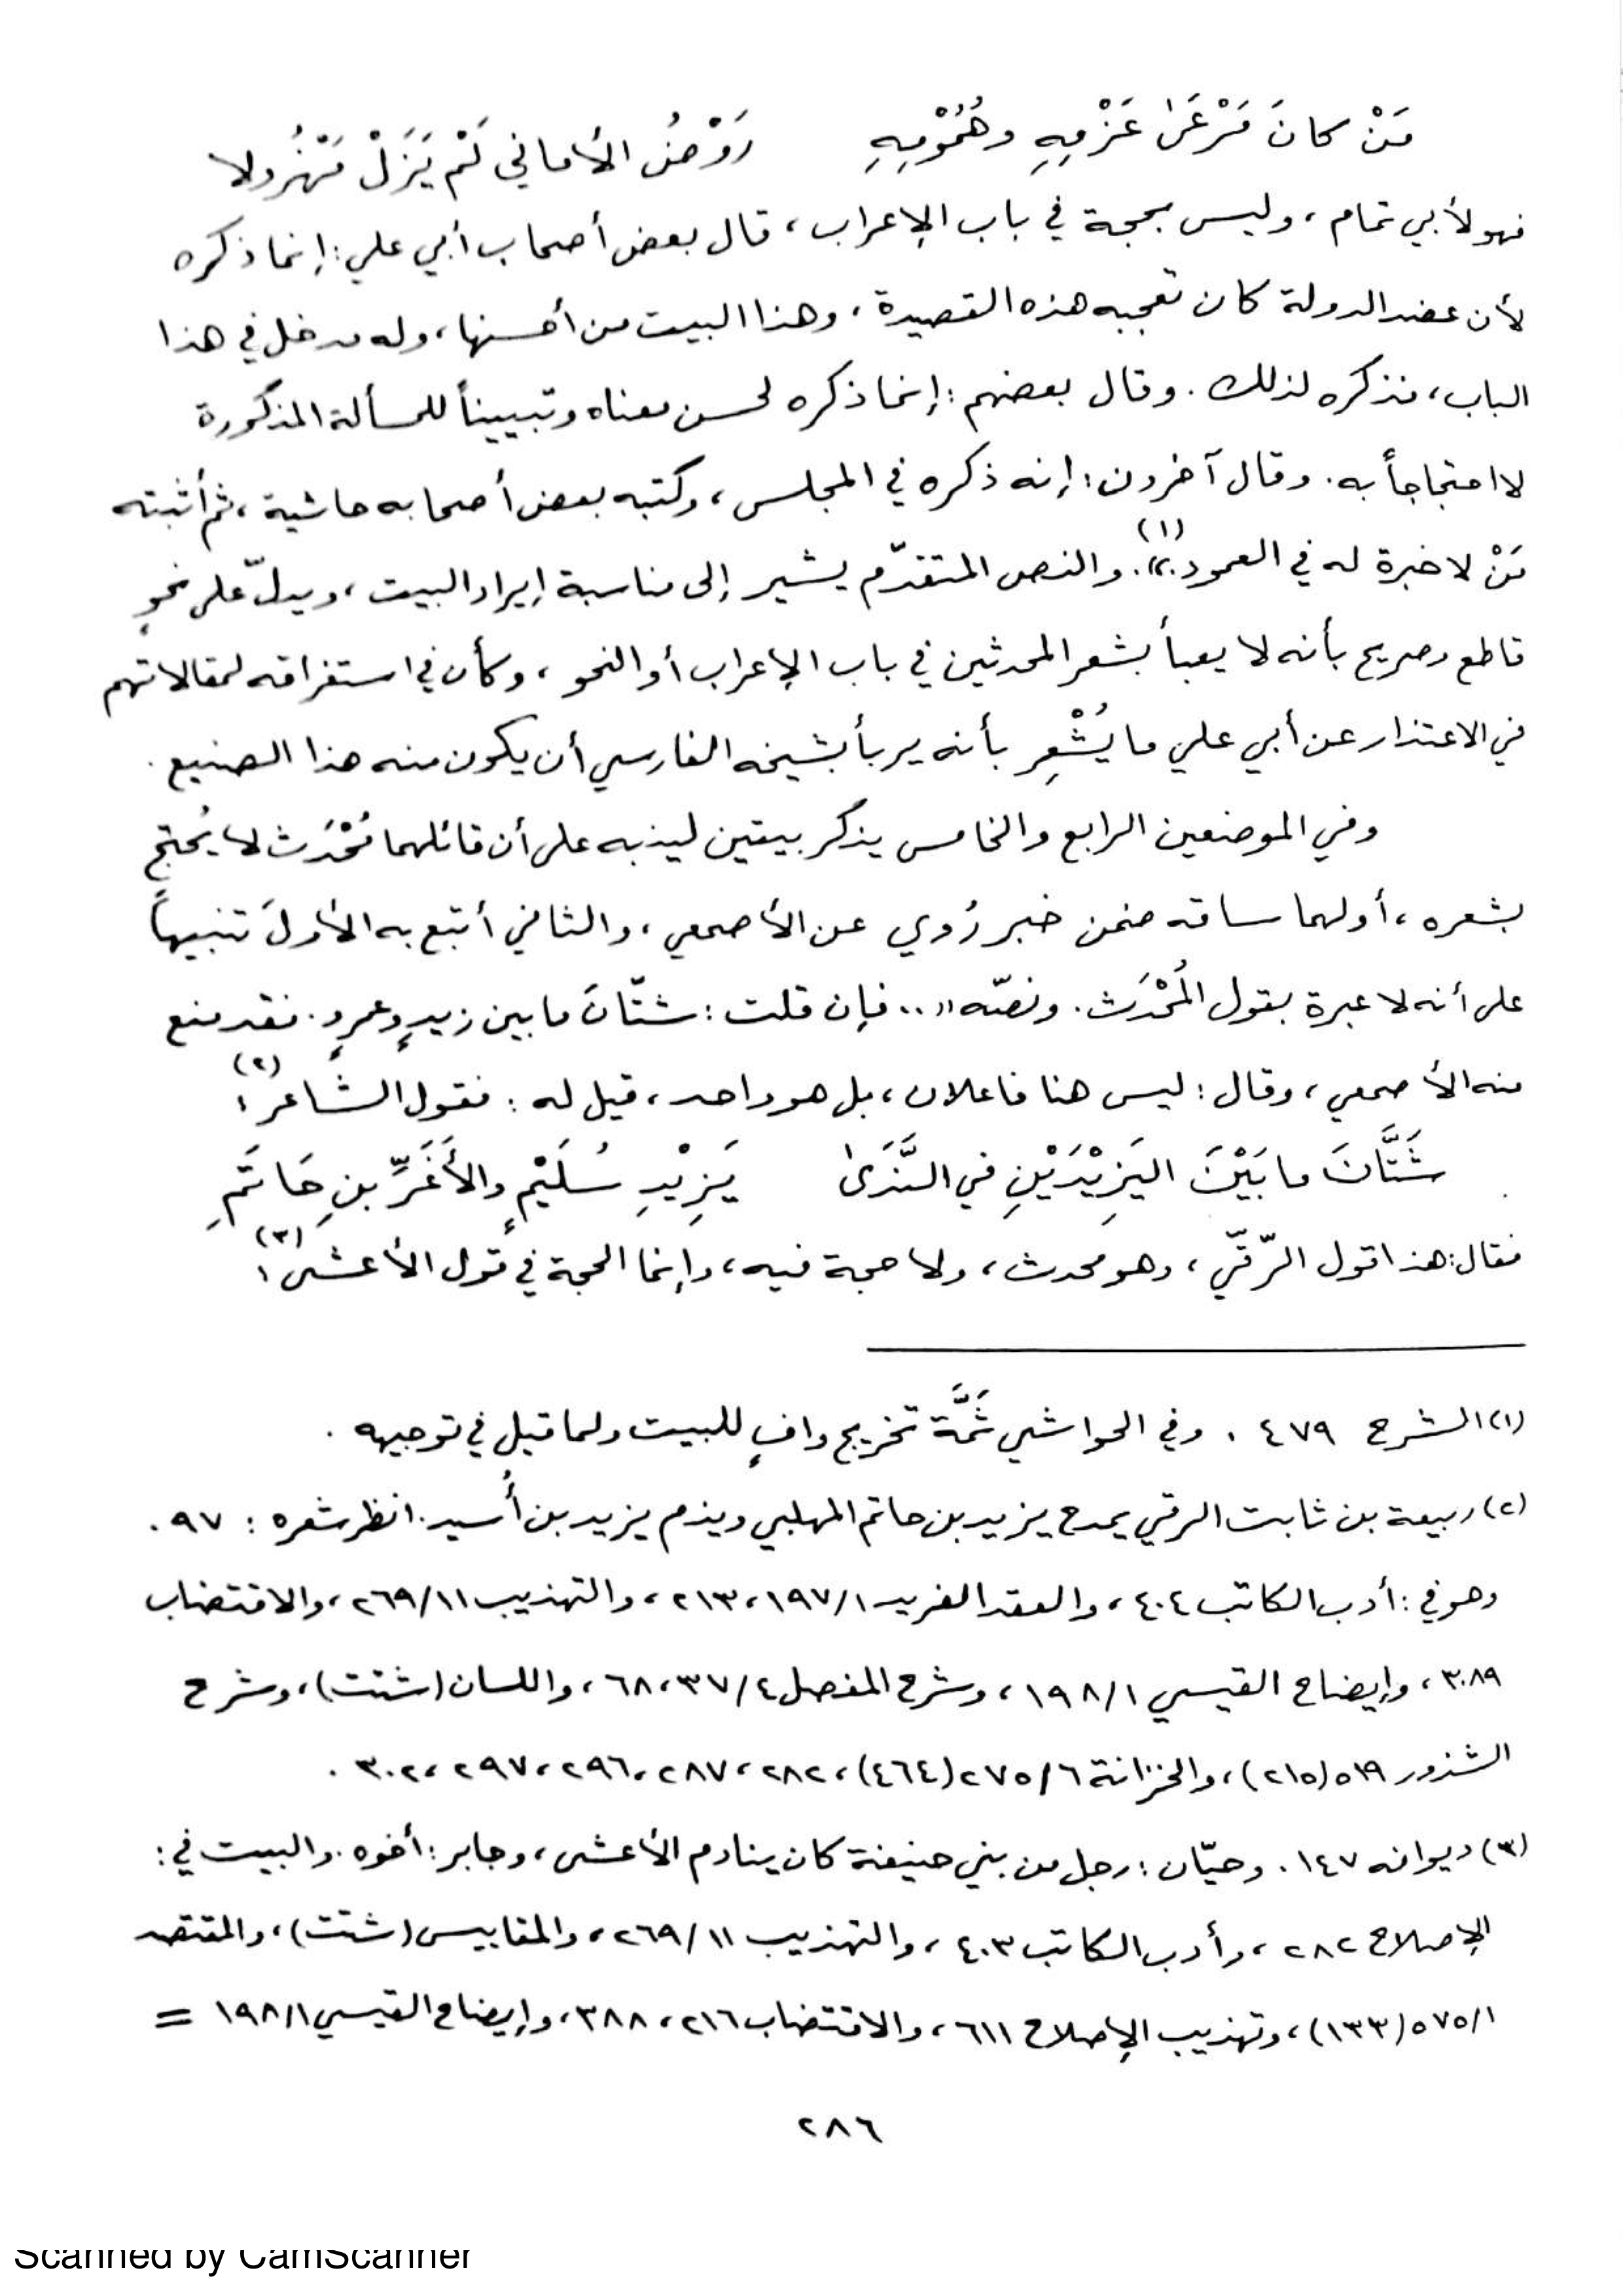 مَنْ كانَ مَرْعَىٰ عَزْمِهِ وهُمُوْمِهِ رَوْضُ الأماني لَمْ يَزَلْ مَهْزُولا
فهو لأبي تمام ، وليس بحجة في باب الإعراب ، قال بعض أصحاب أبي علي : إنما ذكره
لأن عضد الدولة كان تعجبه هذه القصيدة ، وهذا البيت من أحسنها ، وله مدخل في هذا
الباب ، فذكره لذلك . وقال بعضهم : إنما ذكره لحسن معناه وتبييناً للمسألة المذكورة
لا احتجاجاً به . وقال آخرون : إنه ذكره في المجلس ، وكتبه بعض أصحابه حاشية ، ثم أثبته
مَنْ لا خبرة له في العمود »(١). والنص المتقدّم يشير إلى مناسبة إيراد البيت ، ويدلّ على نحوٍ
قاطع وصريح بأنه لا يعبأ بشعر المحدثين في باب الإعراب أو النحو ، وكأن في استغراقه لمقالاتهم
في الاعتذار عن أبي علي ما يُشْعِر بأنه يربأ بشيخه الفارسي أن يكون منه هذا الصنيع .
وفي الموضعين الرابع والخامس يذكر بيتين لينبه على أن قائلهما مُحْدَث لا يُحتج
بشعره ، أولهما ساقه ضمن خبر رُوي عن الأصمعي ، والثاني أتبع به الأولَ تنبيهاً
على أنه لا عبرة بقول المُحْدَث . ونصّه « .. فإن قلت : شتّانَ ما بين زيدٍ وعمرٍو . فقد منع
منه الأصمعي ، وقال : ليس هنا فاعلان ، بل هو واحد ، قيل له : فقول الشاعر(٢) :
شَتَّانَ ما بَيْنَ اليَزِيْدَيْنِ في النَّدَىٰ يَزِيْدِ سُلَيْمٍ والأَغَرِّ بنِ حَاتَمِ
فقال : هذا قول الرّقّي ، وهو محدث ، ولا حجة فيه ، وإنما الحجة في قول الأعشى(٣) :
(١) الشرح ٤٧٩ . وفي الحواشي ثَمَّة تخريج وافٍ للبيت ولما قيل في توجيهه .
(٢) ربيعة بن ثابت الرقي يمدح يزيد بن حاتم المهلبي ويذم يزيد بن أُسيد . انظر شعره : ٩٧ .
وهو في : أدب الكاتب ٤٠٤ ، والعقد الفريد ١/١٩٧ ، ٢١٣ ، والتهذيب ١١/٢٦٩ ، والاقتضاب
٣٠٨٩ ، وإيضاح القيسي ١/١٩٨ ، وشرح المفصل ٤/٣٧ ، ٦٨ ، واللسان (شتت) ، وشرح
الشذور ٥١٩ (٢١٥) ، والخزانة ٦/٢٧٥ (٤٦٤) ، ٢٨٢ ، ٢٨٧ ، ٢٩٦ ، ٢٩٧ ، ٣٠٢ .
(٣) ديوانه ١٤٧ . وحيّان : رجل من بني حنيفة كان ينادم الأعشى ، وجابر : أخوه . والبيت في :
الإصلاح ٢٨٢ ، وأدب الكاتب ٤٠٣ ، والتهذيب ١١/٢٦٩ ، والمقاييس (شتت) ، والمقتصد
١/٥٧٥ (١٣٣) ، وتهذيب الإصلاح ٦١١ ، والاقتضاب ٢١٦ ، ٣٨٨ ، وإيضاح القيسي ١/١٩٨ =
٢٨٦
Scanned by CamScanner